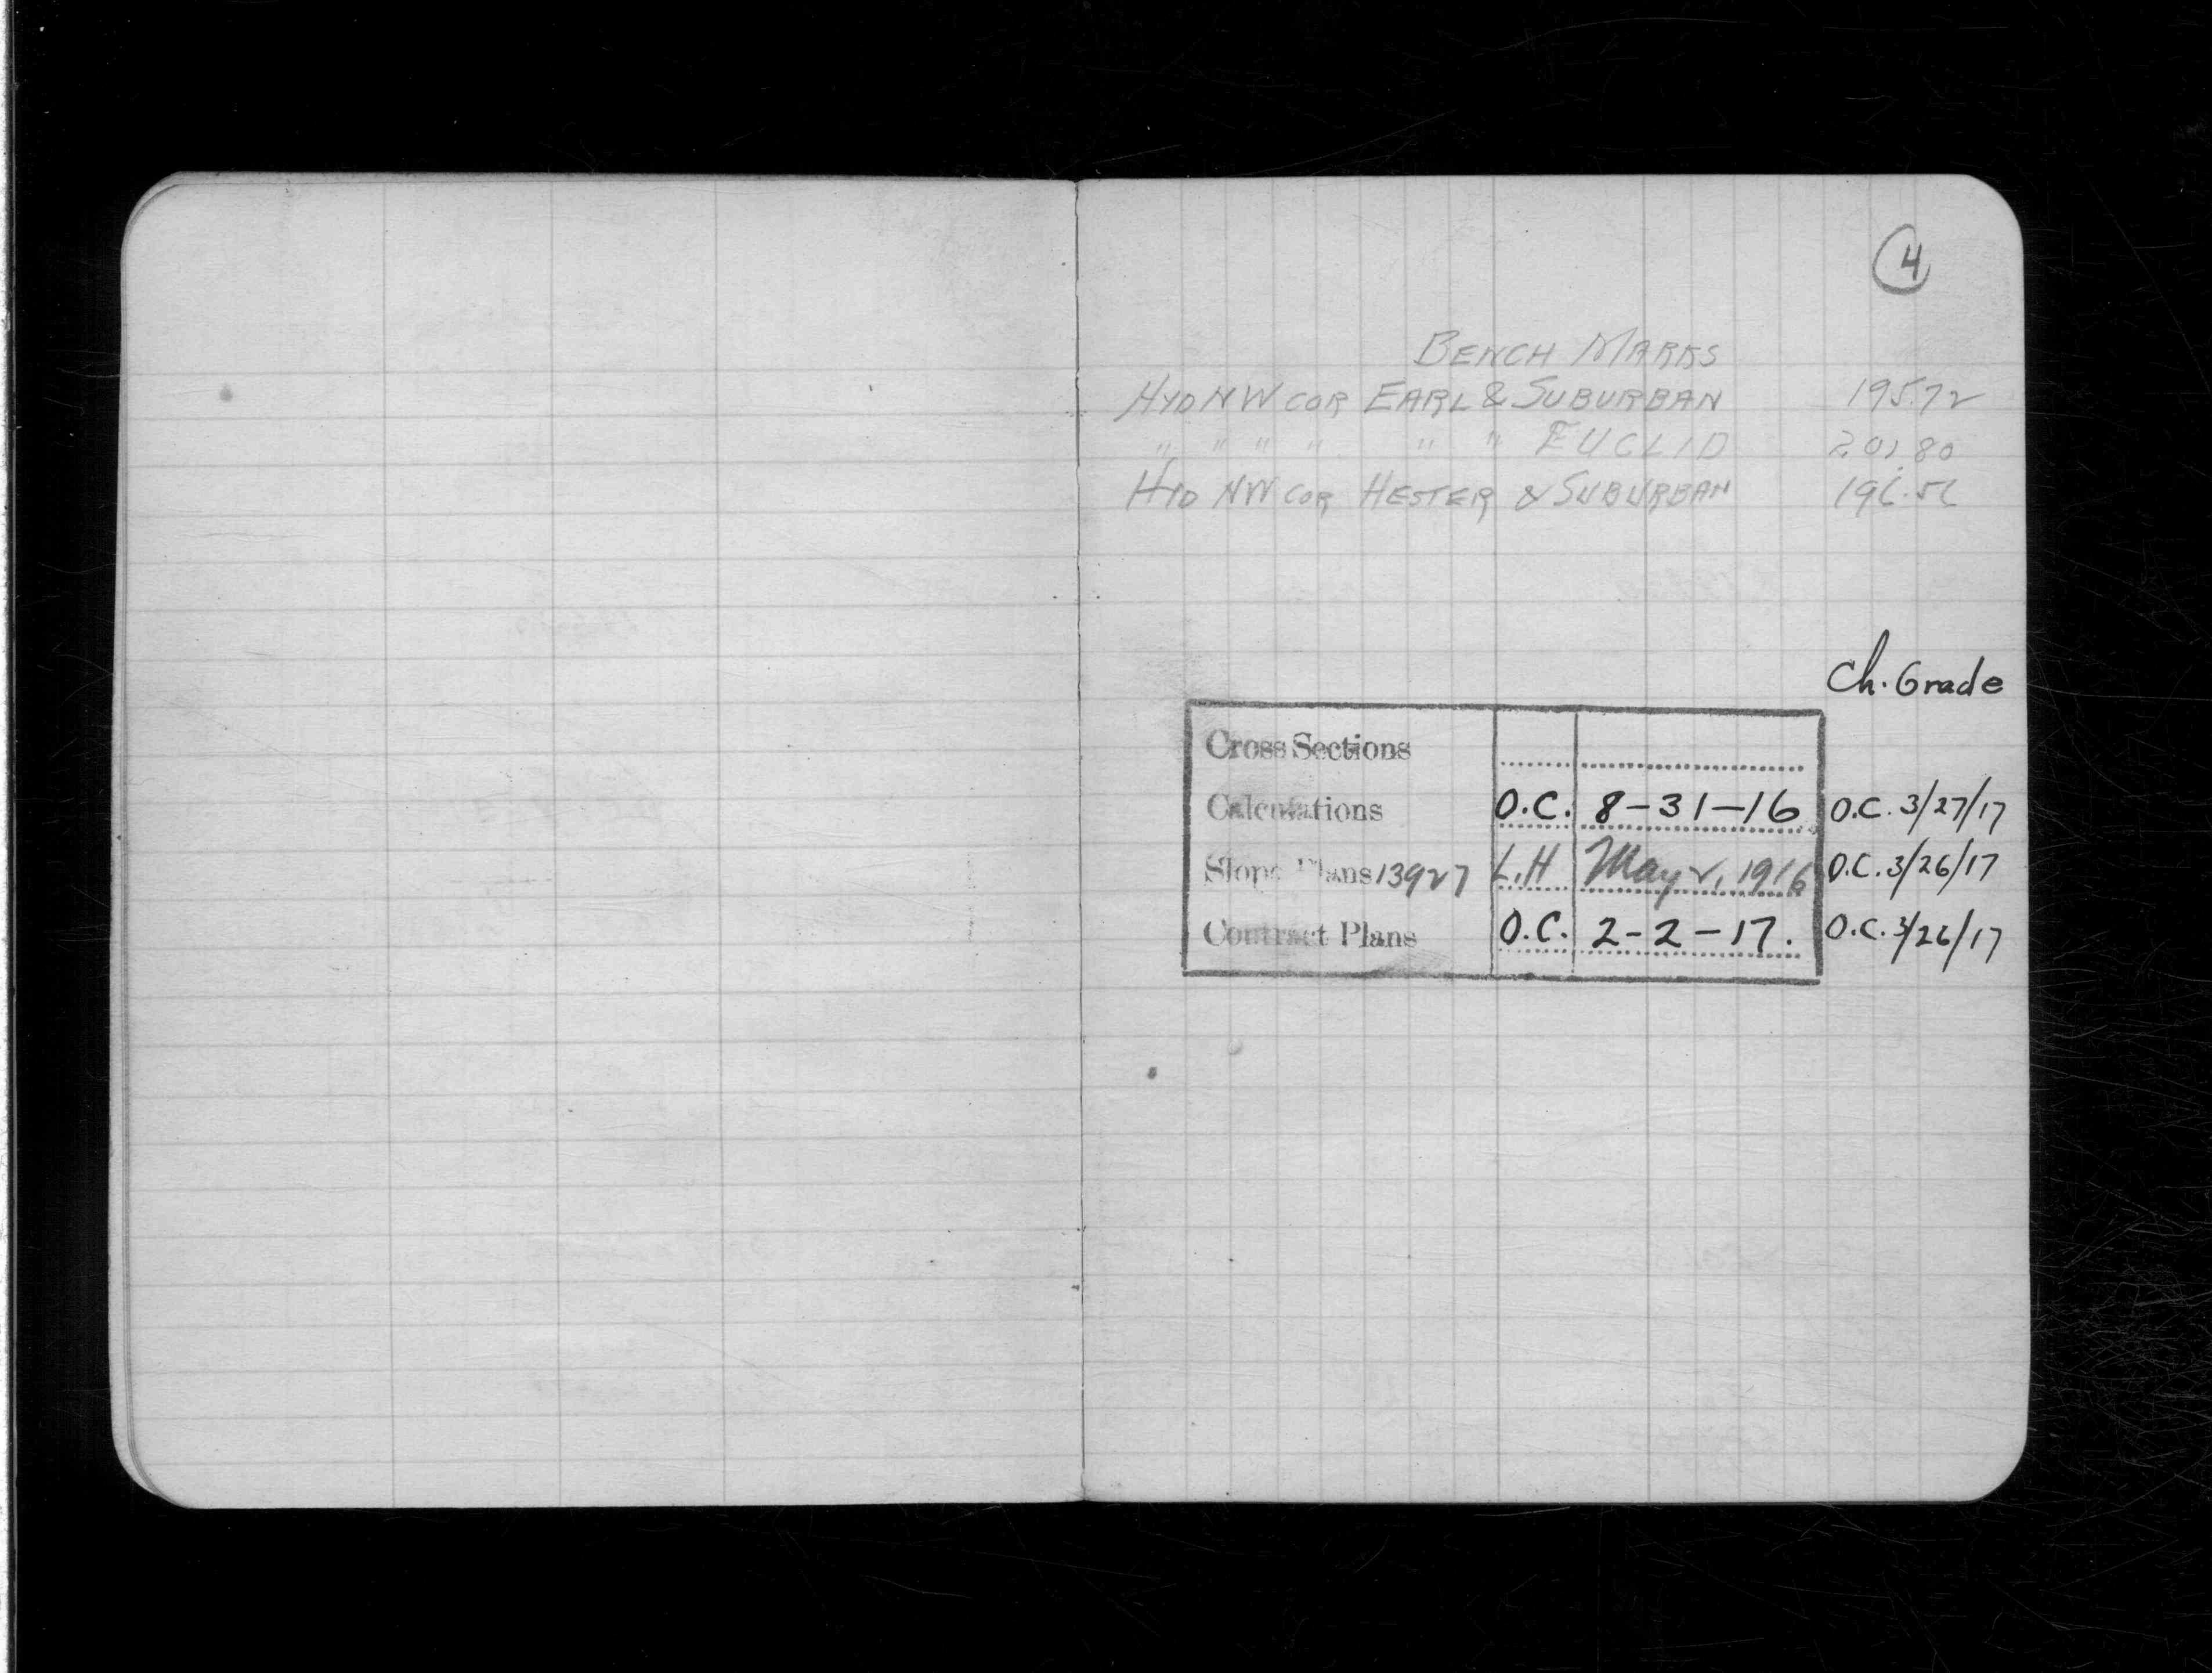 4
BENCH MARKS
HYD NW COR EARL & SUBURBAN 195.72
" " " " " " EUCLID 201.80
HYD NW COR HESTER & SUBURBAN 196.56
Ch. Grade
Cross Sections
Calculations O.C. 8-31-16 O.C. 3/27/17
Slope Plans 13927 L.H May 2, 1916 O.C. 3/26/17
Contract Plans O.C. 2-2-17. O.C. 3/26/17